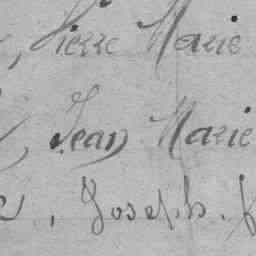 , Pierre Marie
, Jean Marie
, Joseph.